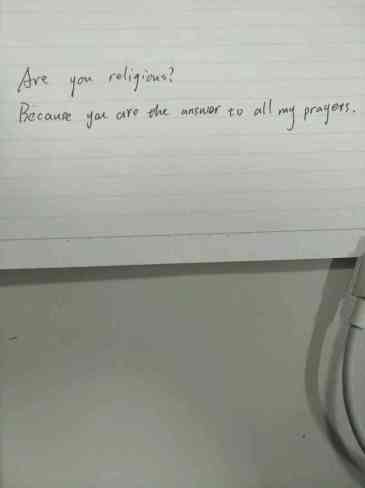 Are you religious?
Because you are the answer to all my prayers.